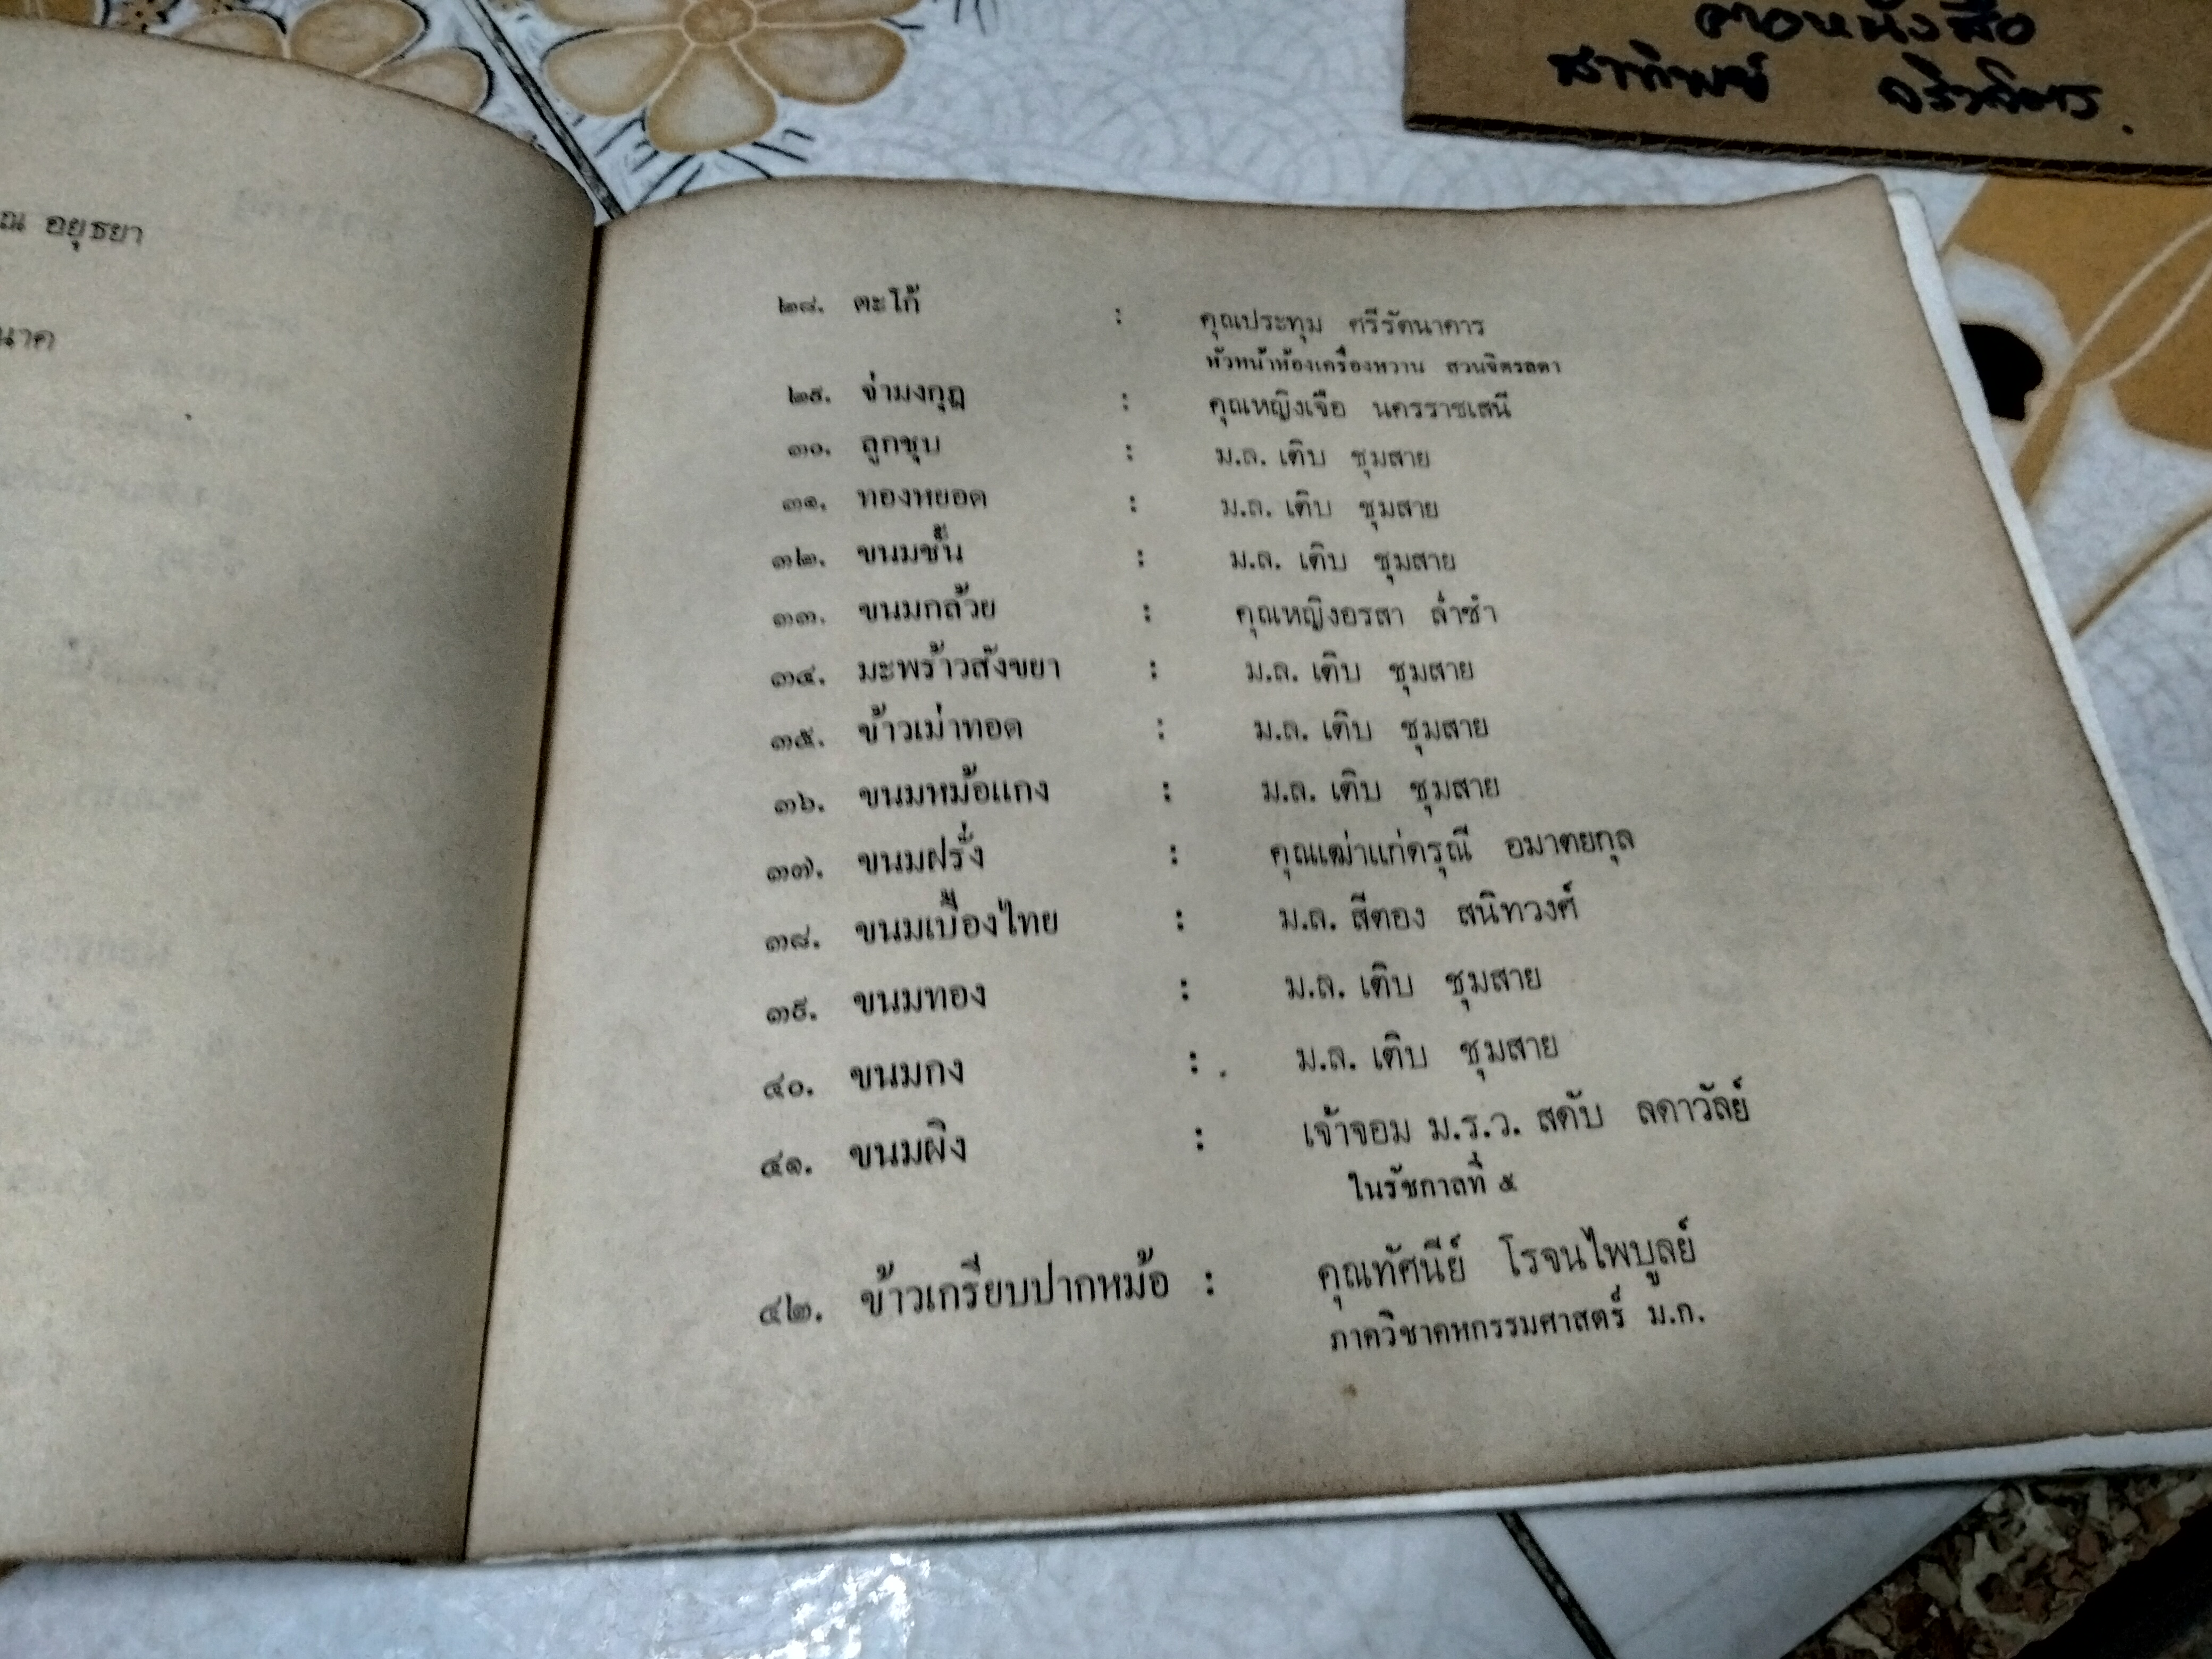 ณ อยุธยา
นาค
๒๘. ตะโก้ : คุณประทุม ศรีรัตนาคาร
หัวหน้าห้องเครื่องหวาน สวนจิตรลดา
๒๙. จ่ามงกุฎ : คุณหญิงเจือ นครราชเสนี
๓๐. ลูกชุบ : ม.ล. เติบ ชุมสาย
๓๑. ทองหยอด : ม.ล. เติบ ชุมสาย
๓๒. ขนมชั้น : ม.ล. เติบ ชุมสาย
๓๓. ขนมกล้วย : คุณหญิงอรสา ล่ำซำ
๓๔. มะพร้าวสังขยา : ม.ล. เติบ ชุมสาย
๓๕. ข้าวเม่าทอด : ม.ล. เติบ ชุมสาย
๓๖. ขนมหม้อแกง : ม.ล. เติบ ชุมสาย
๓๗. ขนมฝรั่ง : คุณเฒ่าแก่ดรุณี อมาตยกุล
๓๘. ขนมเบื้องไทย : ม.ล. สีตอง สนิทวงศ์
๓๙. ขนมทอง : ม.ล. เติบ ชุมสาย
๔๐. ขนมกง : ม.ล. เติบ ชุมสาย
๔๑. ขนมผิง : เจ้าจอม ม.ร.ว. สดับ ลดาวัลย์
ในรัชกาลที่ ๕
๔๒. ข้าวเกรียบปากหม้อ : คุณทัศนีย์ โรจนไพบูลย์
ภาควิชาคหกรรมศาสตร์ ม.ก.